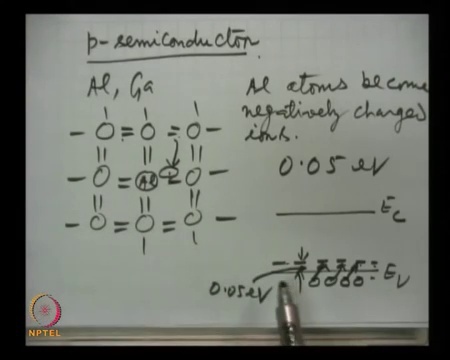 p-semiconductor
Al, Ga
Al atoms become
negatively charged
ions.
Al
0.05 eV
Ec
Ev
0.05eV
NPTEL